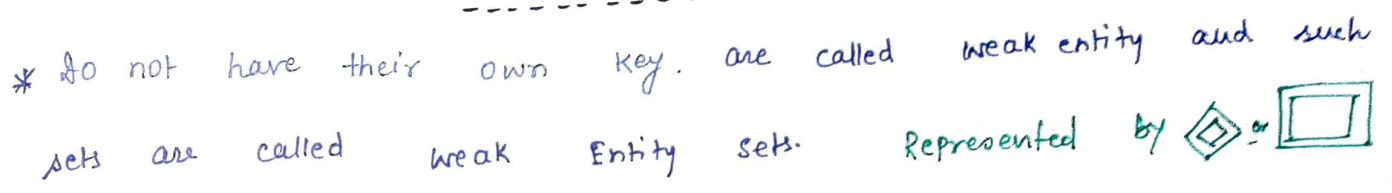 * do not have their own key. are called weak entity and such
sets are called weak Entity sets. Represented by or